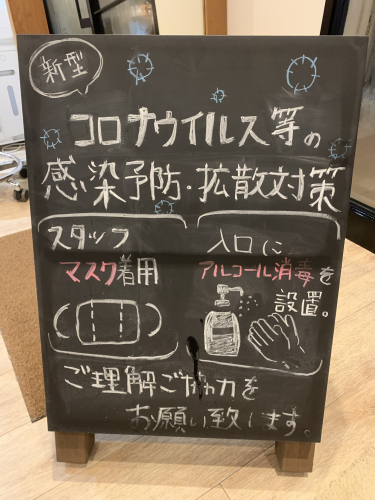 新型
コロナウイルス等の
感染予防・拡散対策
スタッフ
マスク着用
入口に
アルコール消毒を
設置。
ご理解ご協力を
お願い致します。